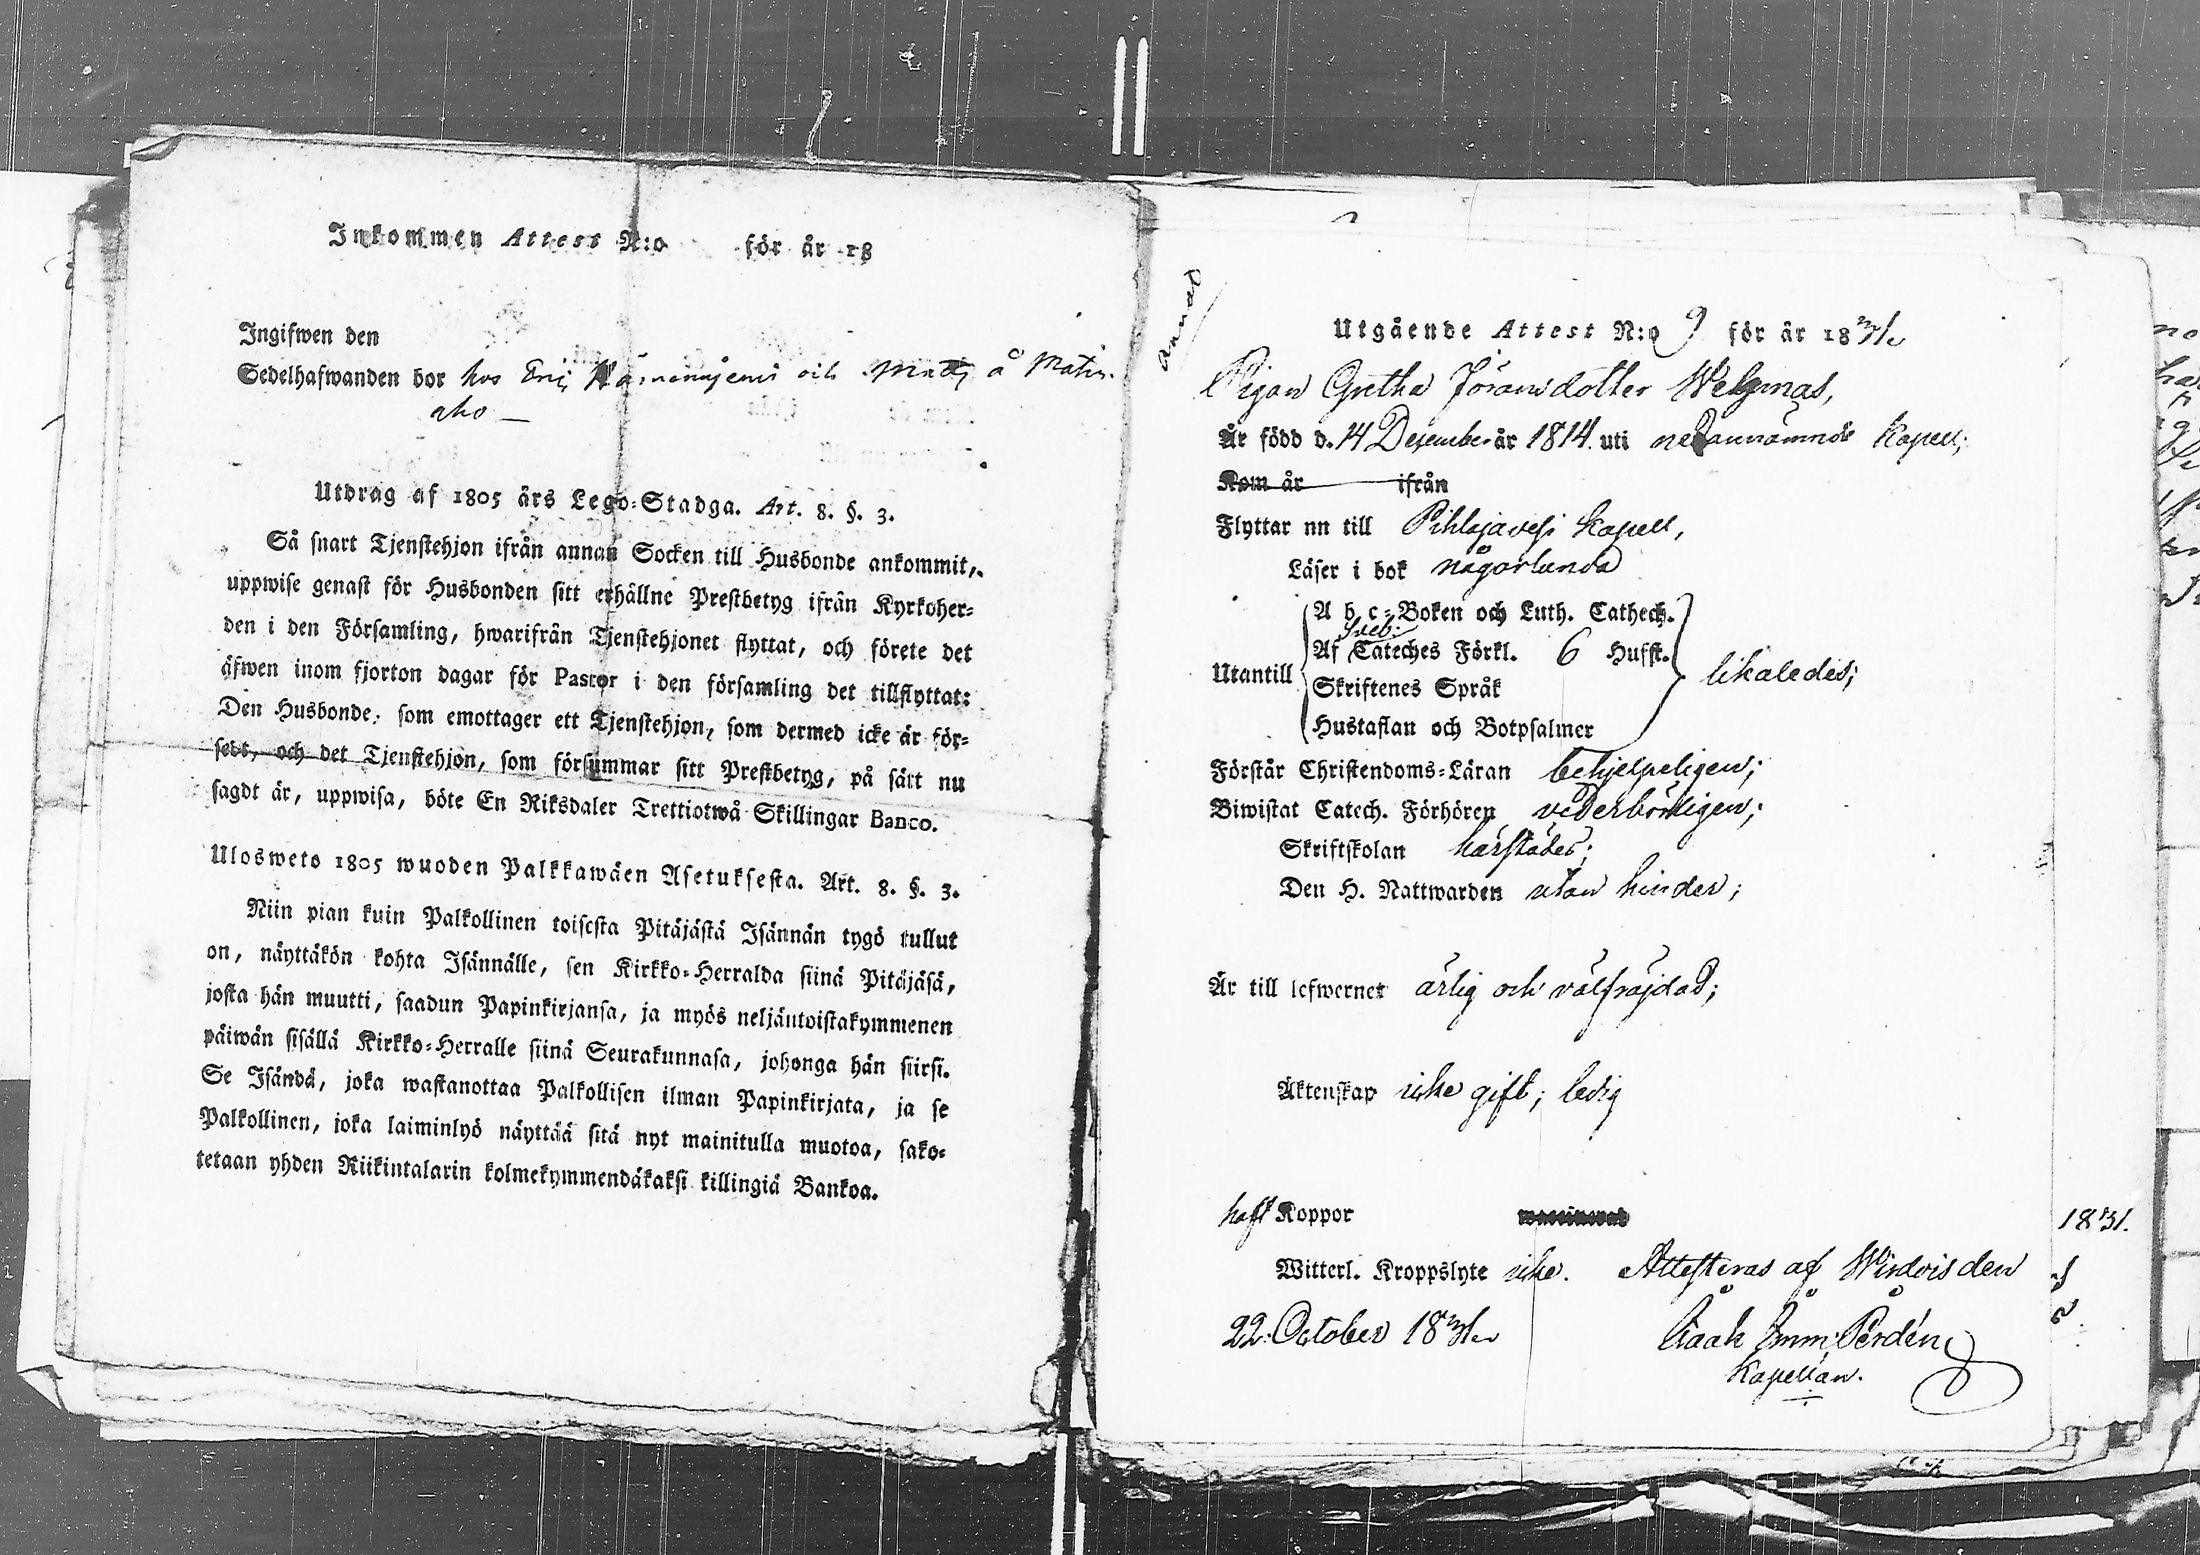 Inkommen Attest N:o för år 18
Ingifwen den
Sedelhafwanden bor hos Eric och Matts å Matin-
aho —
Utdrag af 1805 års Lego-Stadga. Art. 8. §. 3.
Så snart Tjenstehjon ifrån annan Socken till Husbonde ankommit,
uppwise genast för Husbonden sitt erhållne Prestbetyg ifrån Kyrkoher-
den i den Församling, hwarifrån Tjenstehjonet flyttat, och förete det
äfwen inom fjorton dagar för Pastor i den församling det tillflyttat:
Den Husbonde, som emottager ett Tjenstehjon, som dermed icke är för-
sedt, och det Tjenstehjon, som försummar sitt Prestbetyg, på sätt nu
sagdt är, uppwisa, böte En Riksdaler Trettiotwå Skillingar Banco.
Ulosweto 1805 wuoden Palkkawäen Asetuksesta. Art. 8. §. 3.
Niin pian kuin Palkollinen toisesta Pitäjästä Isännän tygö tullut
on, näyttäkön kohta Isännälle, sen Kirkko-Herralda siinä Pitäjäsä,
josta hän muutti, saadun Papinkirjansa, ja myös neljäntoistakymmenen
päiwän sisällä Kirkko-Herralle siinä Seurakunnasa, johonga hän siirsi.
Se Isändä, joka wastanottaa Palkollisen ilman Papinkirjata, ja se
Palkollinen, joka laiminlyö näyttää sitä nyt mainitulla muotoa, sako-
tetaan yhden Riikintalarin kolmekymmendäkaksi killingiä Bankoa.
Utgående Attest N:o 9 för år 1831
Pigan Gretha Jöransdotter
Är född d. 14 December år 1814 uti nedannämnde Kapell;
Kom år ifrån
Flyttar nu till Pihlajavesi Kapell,
Läser i bok någorlunda
A b c-Boken och Luth. Cathech.
Sveb:
Af Cateches Förkl. 6 Hufst.
Utantill likaledes;
Skriftenes Språk
Hustaflan och Botpsalmer
Förstår Christendoms-Läran behjelpeligen;
Biwistat Catech. Förhören vederbörligen;
Skriftskolan härstädes;
Den H. Nattwarden utan hinder;
Är till lefwernet ärlig och välfräjdad;
Äktenskap icke gift; ledig
haft Koppor
Witterl. Kroppslyte icke. Attesteras af Wirdois den
22. October 1831
Isaak Imm: Perdén
Kapellan.
1831.